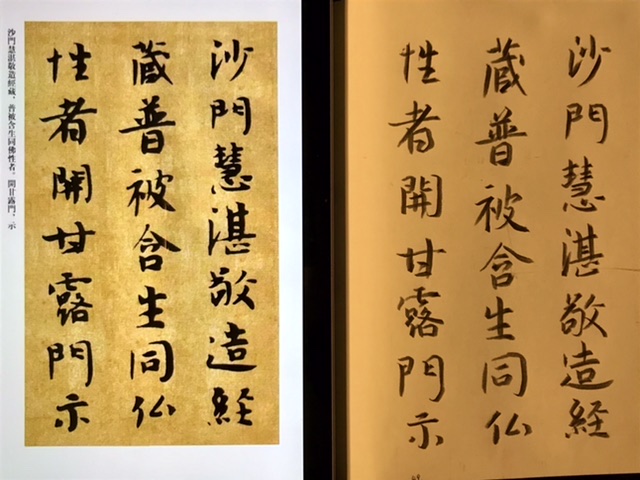 沙門慧湛敬造経
藏普被含生同仏
性者開甘露門示
沙門慧湛敬造經藏，普被含生同佛性者，開甘露門，示
沙門慧湛敬造経
藏普被含生同仏
性者開甘露門示